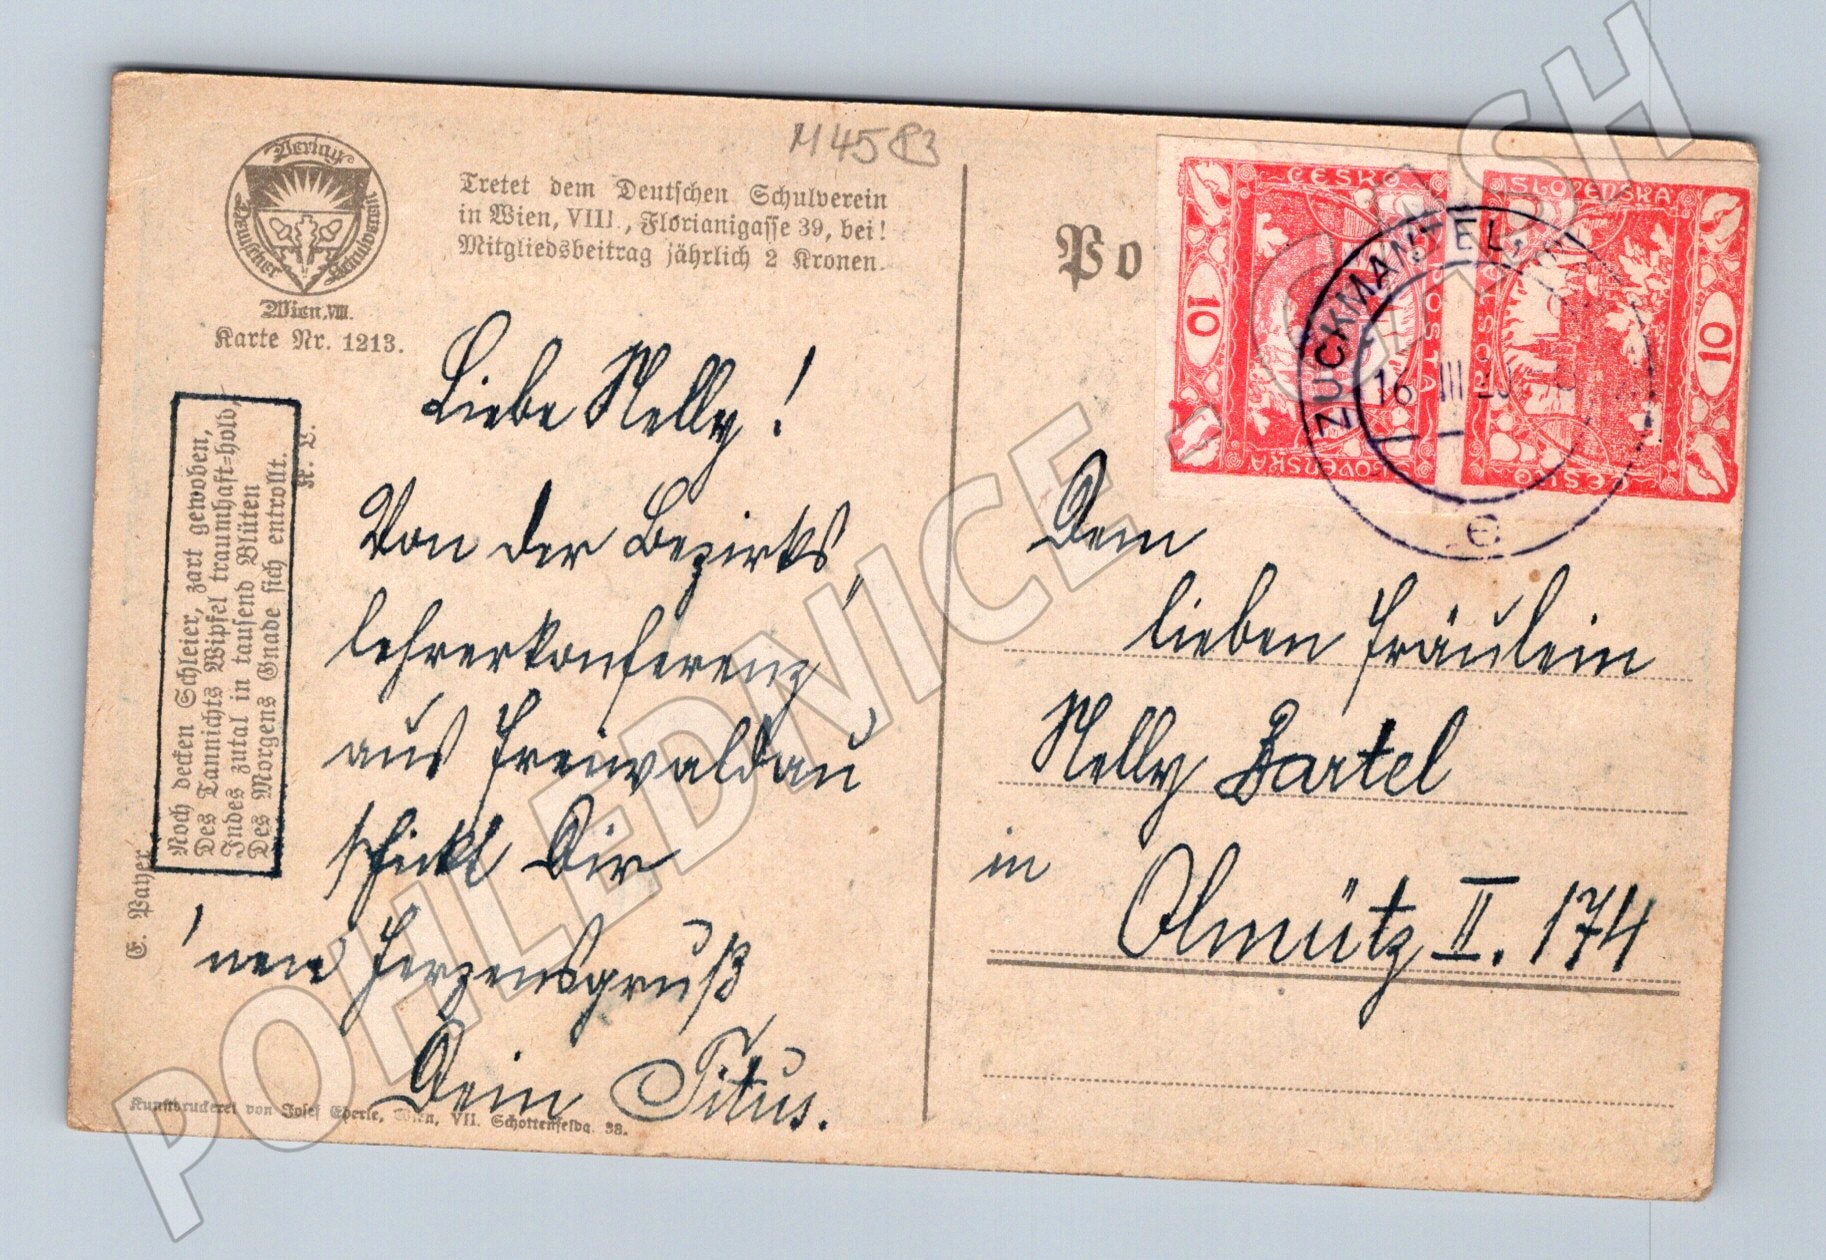 M 4583
Verlag
Deutscher Schulverein
Wien, VIII.
Karte Nr. 1213.
Tretet dem Deutschen Schulverein
in Wien, VIII., Florianigasse 39, bei!
Mitgliedsbeitrag jährlich 2 Kronen.
Noch decken Schleier, zart gewoben,
Des Tannichts Wipfel traumhaft-hold,
Indes zutal in tausend Blüten
Des Morgens Gnade sich entrollt.
K. L.
E. Payer
Liebe Nelly!
Von der Bezirks„
lehrerkonferenz
aus Freiwaldau
schickt Dir
'nen Herzensgruß
Dein Titus.
Kunstdruckerei von Josef Eberle, Wien, VII. Schottenfeldg. 38.
Po
ČESKO
SLOVENSKÁ
POŠTA
10
ČESKO
SLOVENSKÁ
POŠTA
10
ZUCKMANTEL
16 III 20
e
Dem
lieben Fräulein
Nelly Bartel
in
Olmütz II. 174
POHLEDNICE - CASH